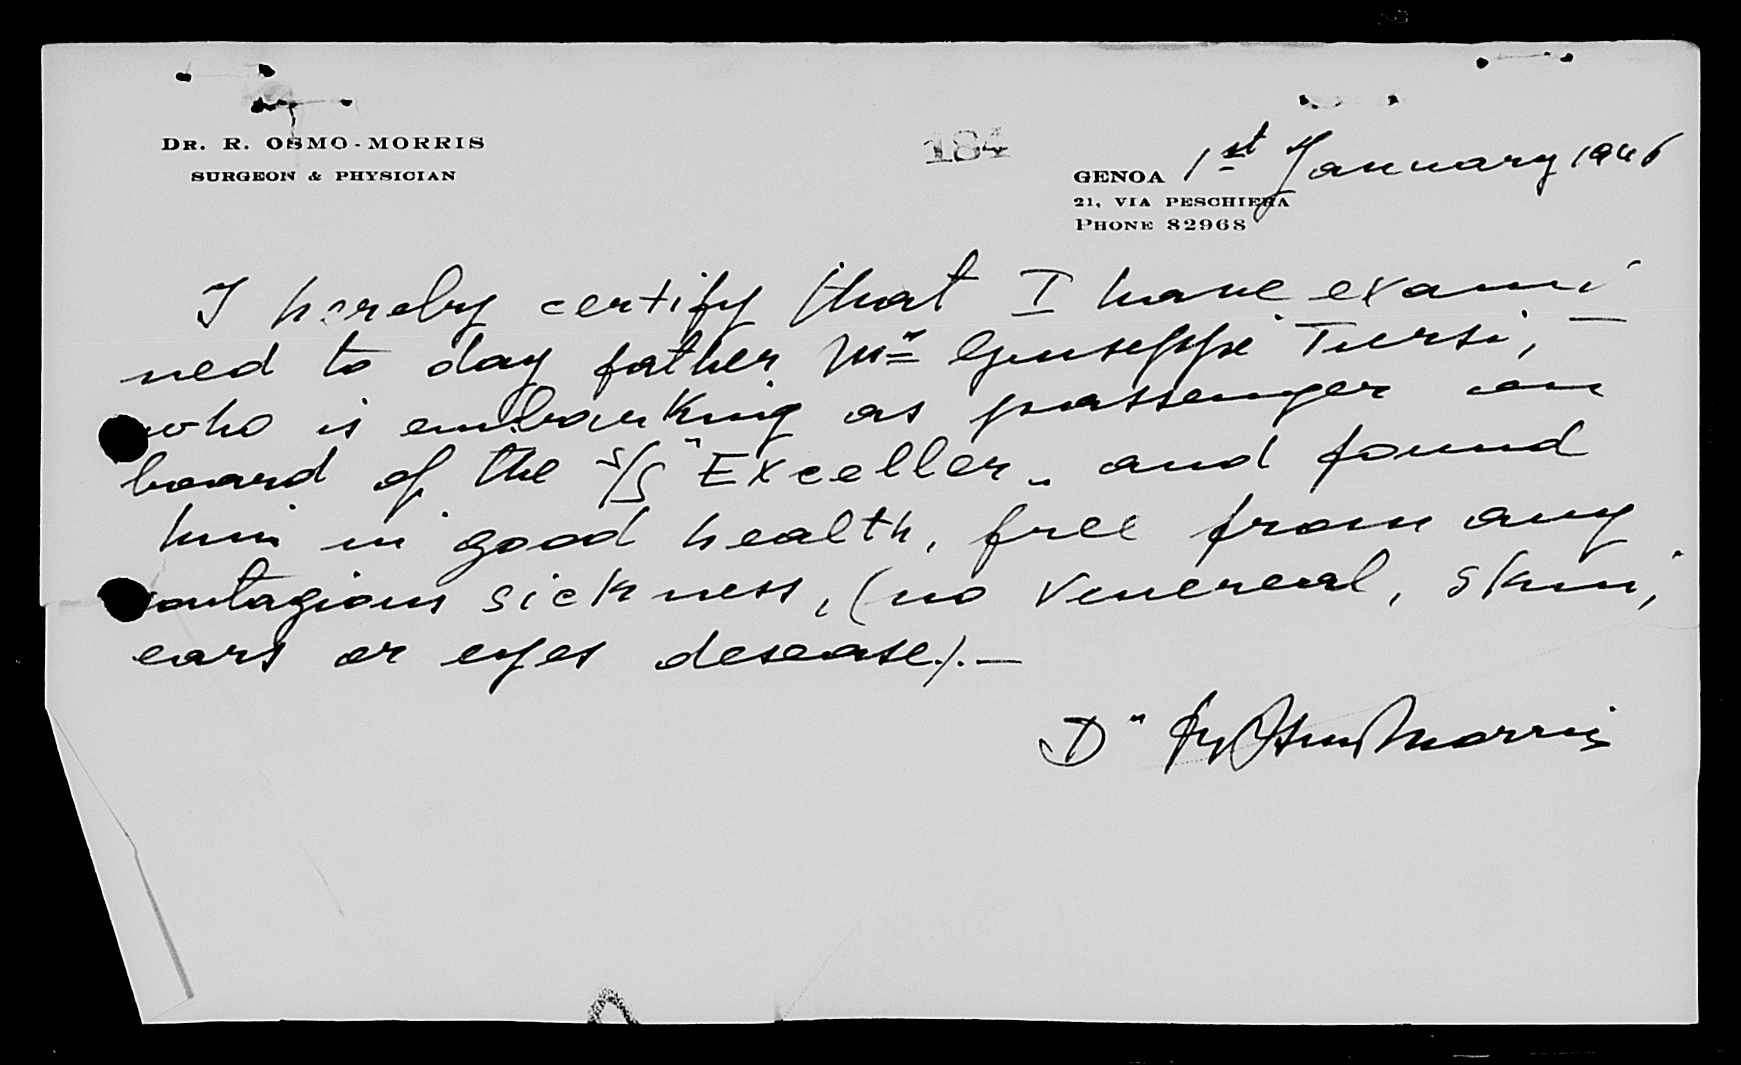 DR. R. OSMO-MORRIS
SURGEON & PHYSICIAN
184
GENOA 1st January 1946
21, VIA PESCHIERA
PHONE 82968
I hereby certify that I have exami-
ned to day father Mr Giuseppe Tursi,
who is embarking as passenger on
board of the S/S "Exceller" and found
him in good health, free from any
contagious sickness, (no venereal, skin,
ears or eyes desease).—
Dr Osmo Morris